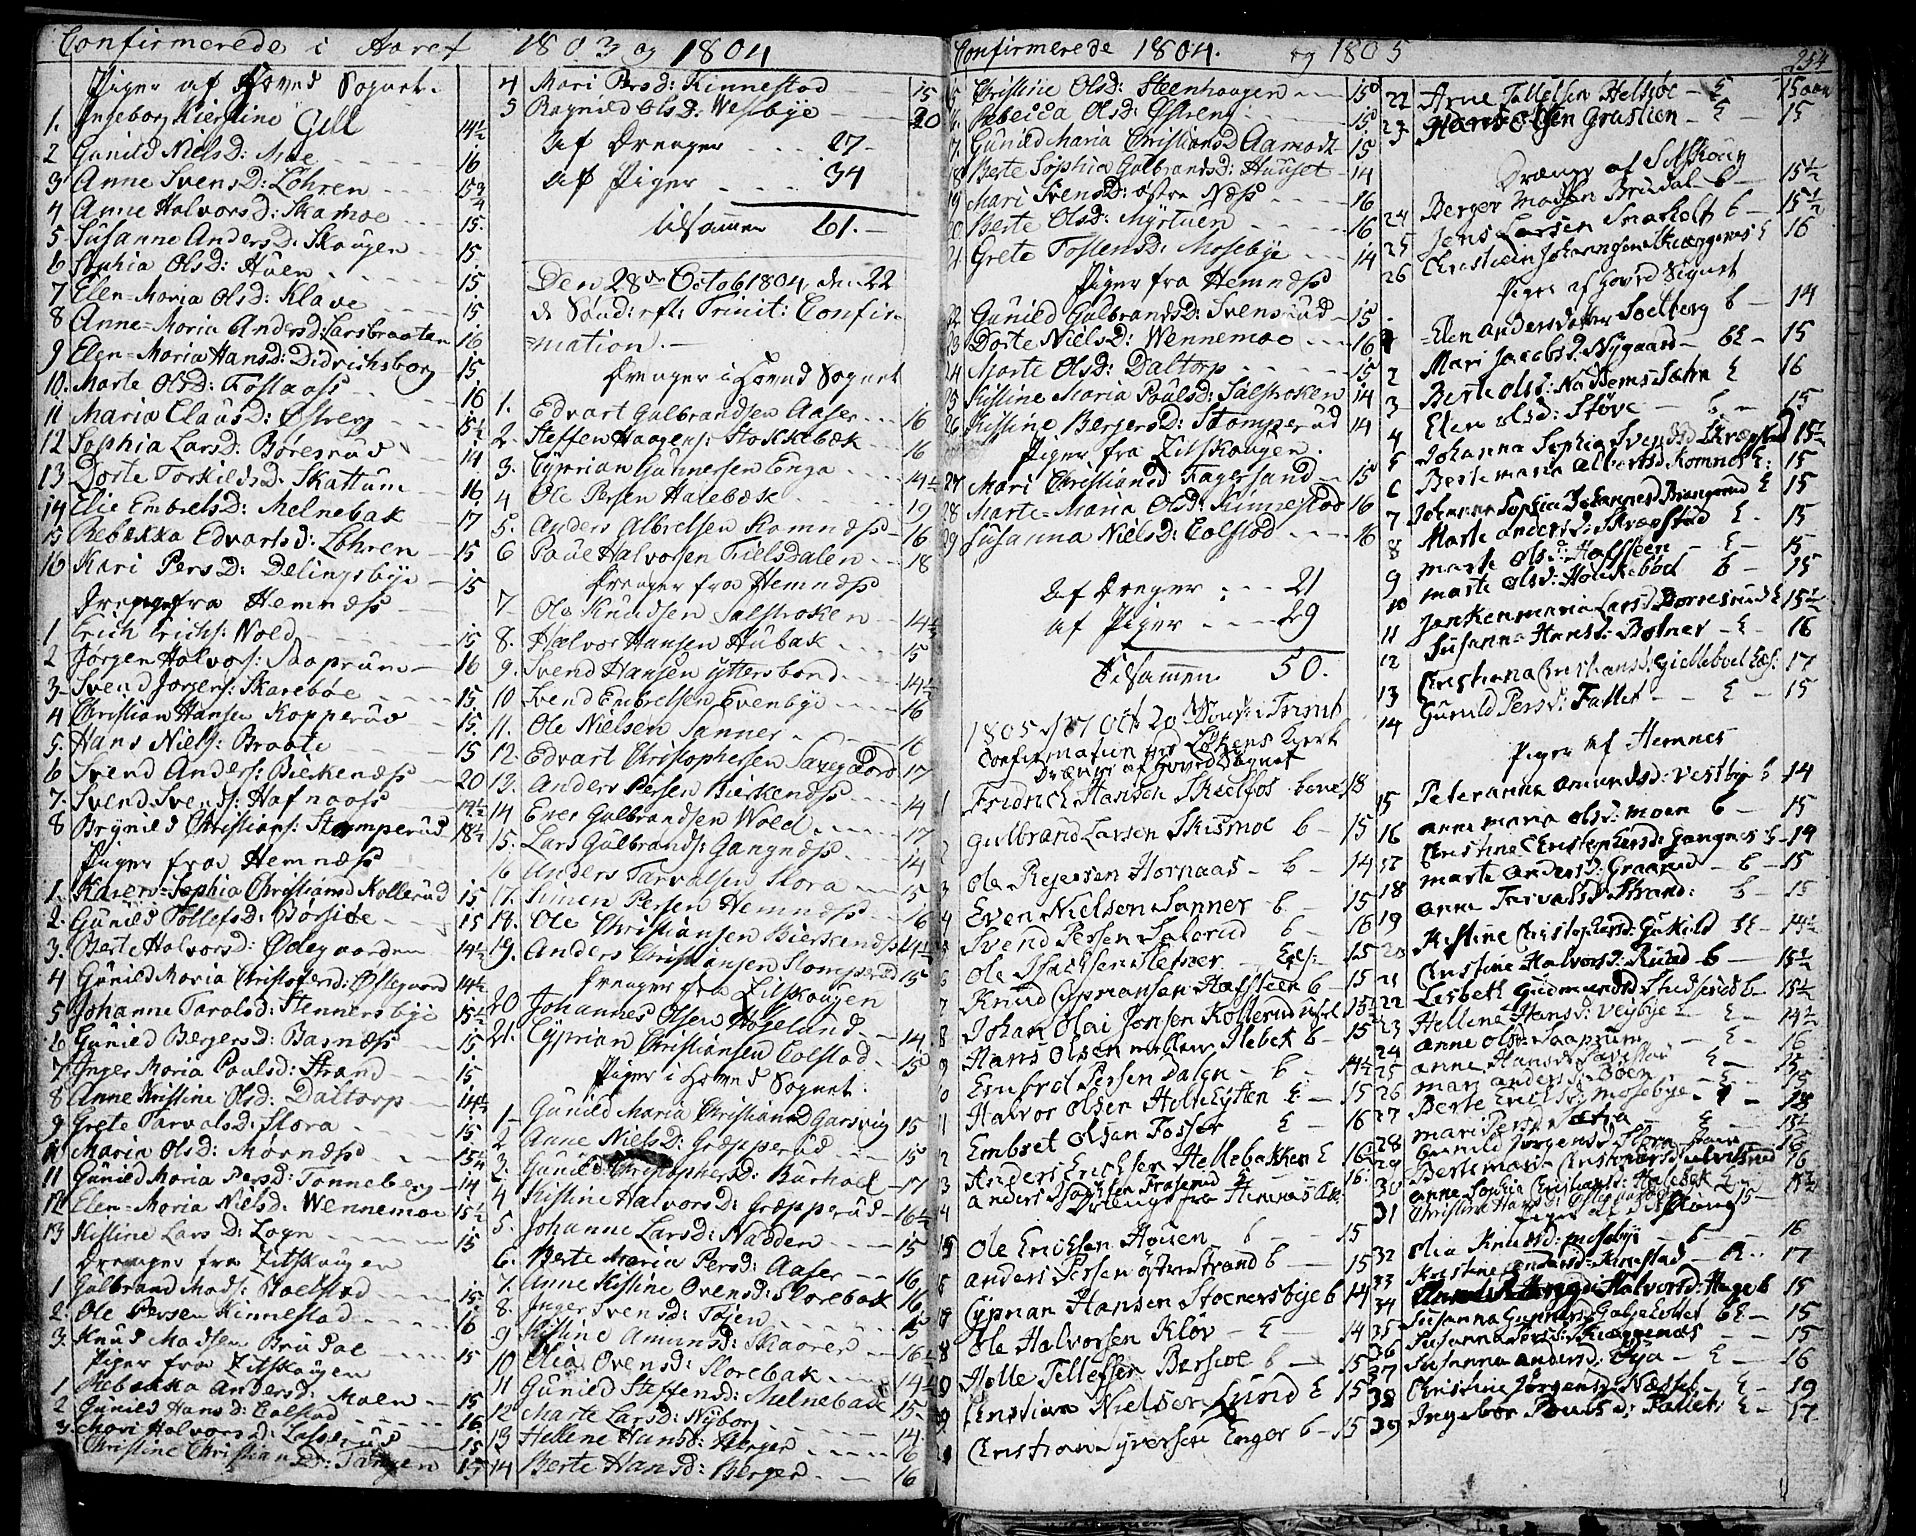 Confirmerede i Aaret 1803 og 1804
Piger af Hoved Sognet.
1. Ingeborg Kierstine Gill 14½
2 Gunild Nielsd: Moe 16
3 Anne Svensd: Løhren 15¾
4 Anne Halvorsd: Skamoe 15.
5 Susanne Andersd. Skougen 15.
6 Sophia Olsd: Huen 15
7 Elen-Maria Olsd: Klave 15
8 Anne-Maria Andersd: Larsbraaten 16
9 Elen-Maria Hansd: Didrichsborg 15
10. Marte Olsd: Fossaas 16
11 Maria Clausd: Østreng 15½
12 Sophia Larsd: Børesrud 14
13 Dorte Torkildsd: Skattum 16
14 Elie Embretsd: Melnebak 17
15 Rebekka Edvartsd: Løhren 15
16 Kari Persd: Delingsbye 15
Drenge fra Hemnæss
1. Erich Erichs: Wold 15
2 Jørgen Halvors: Saaprum 16
3 Svend Jørgens: Skarebøe 15
4 Christian Hansen Kopperud 15.
5. Hans Niels: Braate 15
6 Svend Anders: Bierkenæss 20
7. Svend Svends: Hafnaass 19½
8 Brynild Christians: Stomperud 18½
Piger fra Hemnæss
1. Karen-Sophia Christiansd Kollerud 15
2. Gunild Tollefsd: Børsiøe 15
3. Berte Halvorsd: Ødegaarden 14½
4 Gunild Maria Christofersd: Østegaard 14½
5 Johanne Tarolsd: Stennersbye 15½
6 Gunild Bergersd: Basnæss 15.
7 Inger Maria Paulsd: Strand 15.
8 Anne Kistine Olsd: Daltorp 14½
9 Grete Tarvalsd: Slora 15.
10 Maria Olsd: Mørnæss 15¼
11 Gunild Maria Persd: Tonneberg 14
12 Elen-Maria Nielsd: Wennemoe 15½
13 Kistine Larsd: Logn 15
Drenger fra Zitskougen
1 Gulbrand Mads: Kaelstad 15
2. Ole Persen Kinnestad 16
3. Knud Madsen Brudal 15
Piger fra Zitskougen
1 Rebekka Andersd: Moen 15
2 Gunild Hansd: Colstad 16
3 Mari Halvorsd: Lasserud 15
Christine Christiansd: Tangen 15
4 Mari Persd: Kinnestad 15
5 Ragnild Olsd: Westbye 20
Af Drenger 27
af Piger 34
tilsammen 61.
Den 28de Octob 1804 den 22
de Sønd: eft: Trinit: Confir-
=mation.
Drenger i Hoved Sognet
1. Edvart Gulbrandsen Aaser 16
2. Steffen Haagens: Stokkebæk 16
3. Cyprian Gunnersen Enga 14½
4 Ole Persen Harebæk 19
5. Anders Albretsen Komnæss 16
6 Paul Halvorsen Tielsdalen 18
Drenger fra Hemnæss
7 Ole Knudsen Salstroken 14½
8. Halvor Hansen Hubak 15
9. Svend Hansen yttersbond 14½
10 Svend Embretsen Evenbye 16
11. Ole Nielsen Sanner 16
12. Edvart Christophersen Saxegaard 17
13. Anders Persen Bierkenæss 14
14 Even Gulbrandsen Wold 17
15. Lars Gulbrands: Gangnæss 14
16 Anders Tarvalsen Slora 15
17. Simen Persen Hemnæss 16
18. Ole Christiansen Bierkenæss 14½
19. Anders Christiansen Stomperud 15
Drenger fra Zitskougen
20 Johannes Olsen Høgeland 14
21. Cyprian Christiansen Colstad 15
Piger i Hoved Sognet.
1 Gunild Maria Christiansd Garsvig 15
2 Anne Nielsd: Græpperud 15
3. Gunild Christophersd: Burhoel 17
4 Kistine Halvorsd: Græpperud 16½
5. Johanne Larsd: Nadden 15
6. Berte Maria Persd: Aaser 16
7. Anne Kistine Ovensd: Slorebak 16
8. Inger Svensd: Tøien 15
9 Kistine Amunsd: Skaaren 16½
10 Elia Ovensd: Slorebak 14½
11 Gunild Steffensd: Melnebak 15
12 Marte Larsd: Nyborg 14
13 Hellene Hansd: Berger 16
14 Berte Hansd: Berger 16
Confirmerede 1804. og 1805
254
15 Christine Olsd: Steenhaugen 15
16 Rebecca Olsd: Østreng 15
17. Gunild Maria Christiansd Aamodt 15
18 Berte Sophia Gulbrandsd: Huuset 14
19 Mari Svensd: østre Næss 16
20 Berte Olsd: Myrtuen 16
21 Grete Tostensd: Mosebye 14
Piger fra Hemnæss
22 Gunild Gulbrandsd: Svensrud 15
23 Dorte Nielsd: Wennemoe 16
24 Marte Olsd: Daltorp 15
25 Kistine Maria Paulsd: Salstroken 14
26 Kistine Bergersd: Stomperud 14
Piger fra Zitskougen.
27 Mari Christiansd Fagersand 15
28 Marte-Maria Olsd: Kinnestad 16
29 Susanna Nielsd: Colstad 16
Af Drenger 21
af Piger 29
Tilsammen 50.
1805 d 27 Oct: 20 Sønd: i Trinit
Confirmation ved Løkens Kirke
Drænger af Hoved Sognet
1 Fridrich Hansen Skielfos 18
2 Gulbrand Larsen Skismoe b 15
3 Ole Rejersen Hornaas b 14
4 Even Nielsen Sanner b 15
5 Svend Persen Salerud b 16
6 Ole Isachsen Slefner 15
7 Knud Cyprians en Hafsteen b 15
8 Johan Olai Jonsen Kollerud 15½
9 Hans Olsen Slebek b 15
10 Embret Persen Dalen b 14½
11 Halvor Olsen Holtelytten E 15
12 Embret Olsen Fosser E 16
13 Anders Erichsen Hellebakken E 16½
14 Anders Isachsen Fraserud 16
Drenge fra Hemnæs
15 Ole Erichsen Houen b 15
16 Anders Persen østrestrand b 15
17 Cyprian Hansen Stoenersbye b 14
18 Ole Halvorsen Klov E 14
19 Holle Tollefsen Bersøe b 15
20 Christian Nielsen Lund E 15
21 Christian Syversen Enger b 15
22 Arne Tollefsen Helsjøe E 15 aar
23 Hans Olsen Grastien E 15
Drænge af Sitskoug
24 Berger Madsen Brudal b 15½
25 Jens Larsen Snarholt b 15½
26 Christian Johannesen Skiæggenæs E 16
Piger af Hoved Sognet
1 Elen Andersdatter Soelberg b 14
2 Mari Jacobsd. Nygaard bE 15
3 Berte Olsd: Næssems Sætra E 16
4 Elen Olsd: Støve b 15
5 Johanna Sophia Svensd Skræpstad 15½
6 Berte maria Albertsd Komnes E 15
7 Johanna Sophia Johannesd Brangerud E 15
8 Marte Andersd: Skræpstad E 15
9 marte Olsd: Hafsteen E 15
10 marte Olsd: Houkebøl b 15
11 Janken maria Larsd Børresrud E 15½
12 Susanna Hansd: Bolner E 16
13 Christiana Christiansd: Giellebøl 17
14 Gunild Persd: Fallet E 15
Piger af Hemnes
15 Peteranna Amundsd: Vestbye b 14
16 anne maria Olsd: moen b 15
17 Christine Christophersd: Gangnes b 14
18 marte Andersd: Graarud b 15
19 anne Tarvaldsd Strand: b 15
20 Kistine Christophersd: Gukild bE 14½
21 Christine Halvorsd: Ruud b 15½
22 Lisbeth Gudmundsd b 15½
23 Hellene Hansd: Veibye E 14½
24 anne Olsd: Saaprum E 16
25 anne Hansd: E 15
26 mari Andersd: Bøen E 15
27 Berte Erichsd: Mosebye 18
28 mari Persd: Sætra E 15½
29 Gunild Jørgensd: Slora 16
30 Bertemari Christiansd 16
31 anne Sophie Christiansd: Halebek 15½
Christine Hansd: Østegaard 15
Piger af Sitskoug
32 Olia Knudsd: Mosebye b 16
33 Kristine Andersd: Kinnestad 17
34 Halvorsd: Hage b 15
35 Susanna Gunnersd: bE 15
36 Susanna Persd: Skiæggenæs 15
37 Susanna Andersd: Øja E 16
38 Christine Jørgensd: Næsset E 19
39 Ingebor Poulsd: Fallet E 17